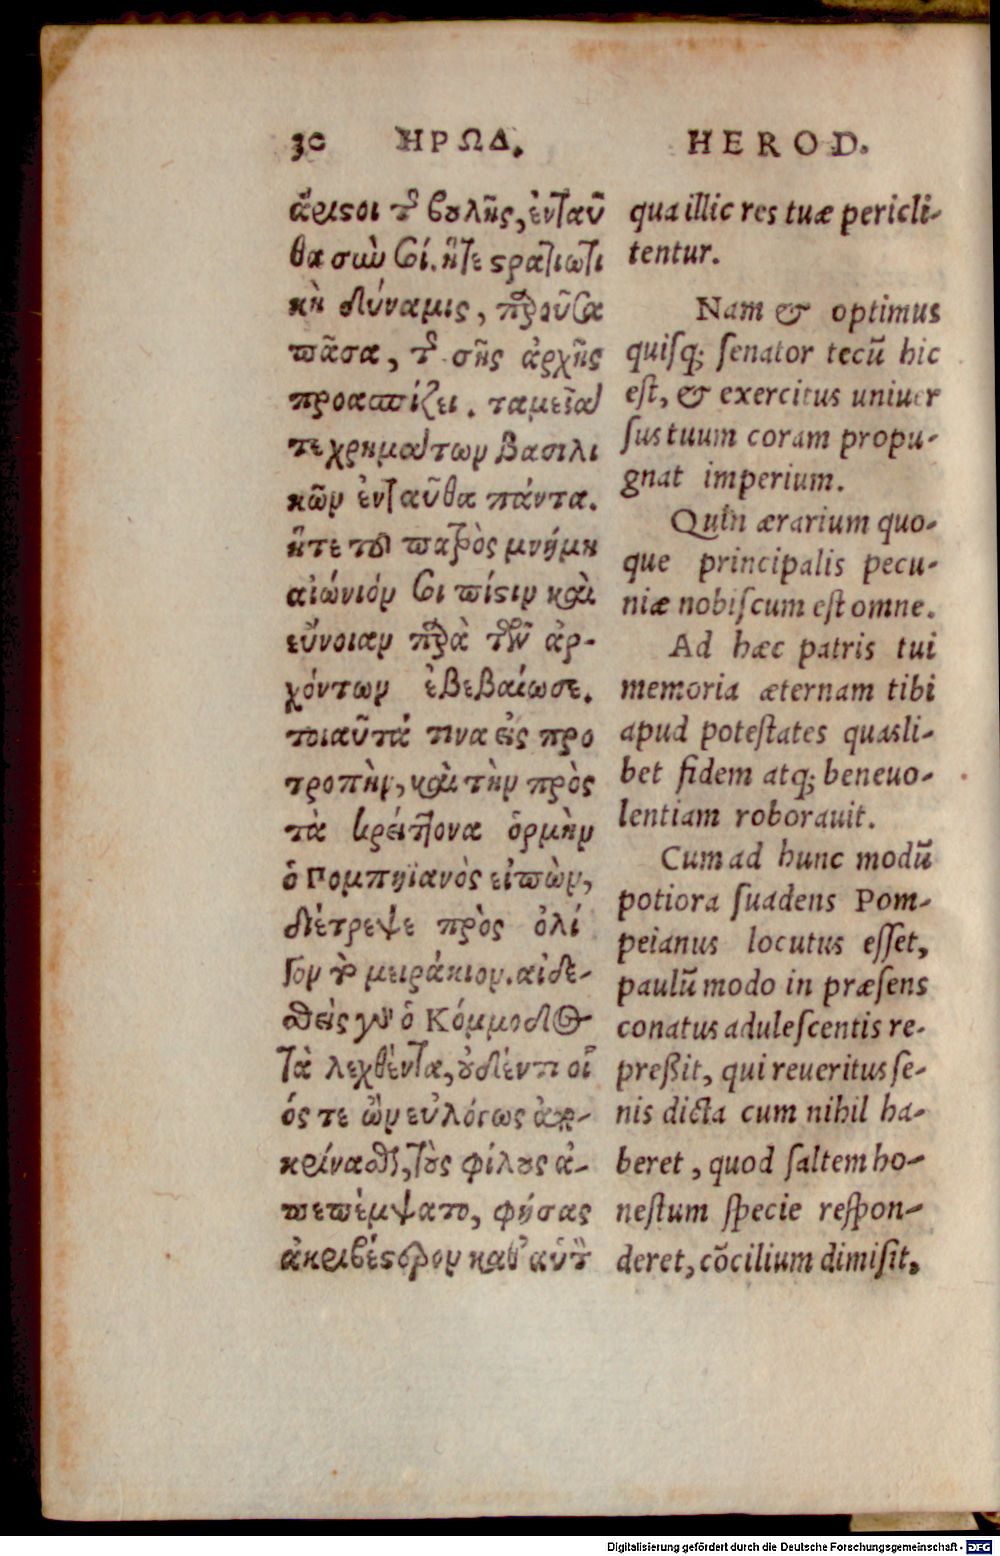 30 ἩΡΩΔ. HEROD.
ἄριϛοι τ̃ βουλῆς, ἐνταῦ
θα σὺν σοί. ἥτε ϛρατιωτι
κὴ δύναμις, παροῦσα
πᾶσα, τ̃ σῆς ἀρχῆς
προασπίζει. ταμεῖα
τε χρημάτων βασιλι
κῶν ἐνταῦθα πάντα.
ἥτε τοῦ πατρὸς μνήμη
αἰώνιόν σοι πίϛιν καὶ
εὔνοιαν παρὰ τῶν ἀρ-
χόντων ἐβεβαίωσε.
τοιαῦτά τινα εἰς προ
τροπὴν, καὶ τὴν πρὸς
τὰ κρείττονα ὁρμὴν
ὁ Πομπηϊανὸς εἰπὼν,
διέτρεψε πρὸς ὀλί
γον τὸ μειράκιον. αἰδε-
σθεὶς γὰρ ὁ Κόμμοδος
τὰ λεχθέντα, οὐδέν τι οἷ
ός τε ὢν εὐλόγως ἀπο-
κρίνασθαι, τοὺς φίλους ἀ-
πεπέμψατο, φήσας
ἀκριβέϛερον καθ' αὑτὸν
qua illic res tuæ pericli-
tentur.
Nam & optimus
quiſq; ſenator tecũ hic
eſt, & exercitus uniuer
ſus tuum coram propu-
gnat imperium.
Quin ærarium quo-
que principalis pecu-
niæ nobiſcum eſt omne.
Ad hæc patris tui
memoria æternam tibi
apud poteſtates quasli-
bet fidem atq; beneuo-
lentiam roborauit.
Cum ad hunc modũ
potiora ſuadens Pom-
peianus locutus eſſet,
paulũ modo in præſens
conatus aduleſcentis re-
preßit, qui reueritus ſe-
nis dicta cum nihil ha-
beret, quod ſaltem ho-
neſtum ſpecie reſpon-
deret, cõcilium dimiſit,
Digitalisierung gefördert durch die Deutsche Forschungsgemeinschaft - DFG